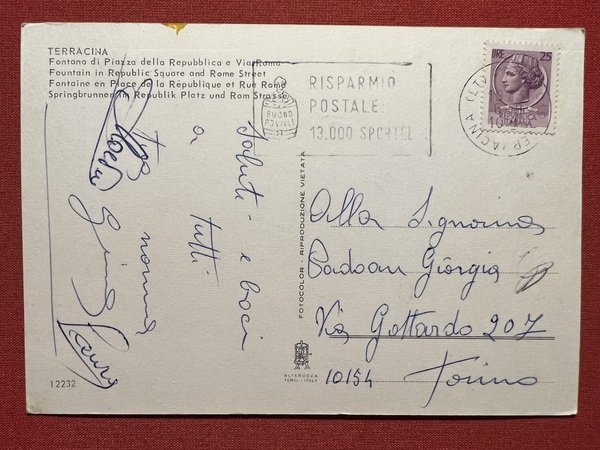 TERRACINA
Fontana di Piazza della Repubblica e Via Roma
Fountain in Republic Square and Rome Street
Fontaine en Place de la République et Rue Rome
Springbrunnen in Republik Platz und Rom Strasse
RISPARMIO
POSTALE
13.000 SPORTELLI
BUONO
POSTALE
LIRE 25
Saluti e baci
a tutti
nonna
Gina
FOTOCOLOR - RIPRODUZIONE VIETATA
Alla Signorina
Padoan Giorgia
Via Gottardo 207
10154 Torino
ALTEROCCA
TERNI - ITALY
12232